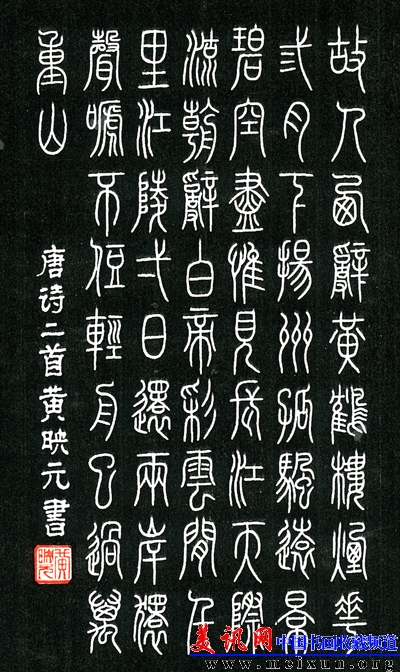 故人西辭黃鶴樓煙花
弎月下揚州孤颿遠景
碧空盡惟見長江天際
流朝辭白帝彩雲間千
里江陵弌日還兩岸猿
聲嗁不住輕舟已過萬
重山
唐诗二首黄映元書
美讯网 中国书画收藏频道
www.meixun.org